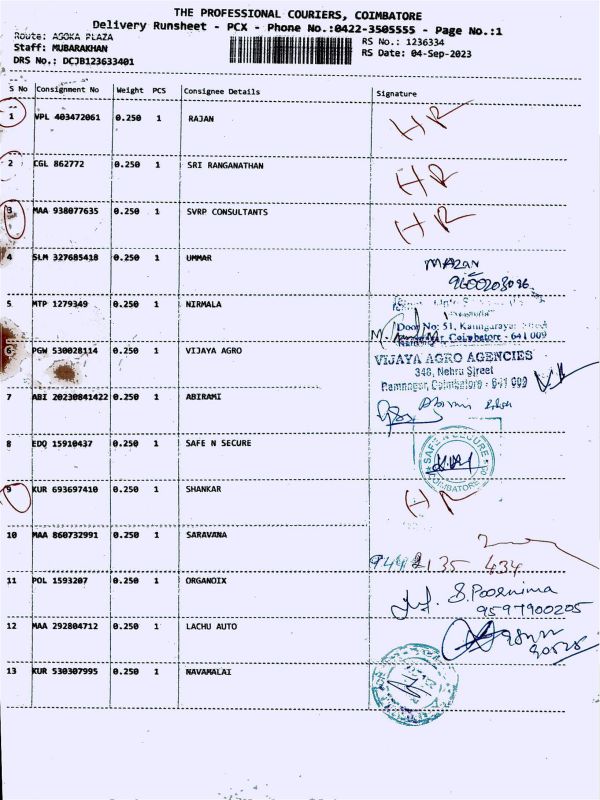 THE PROFESSIONAL COURIERS, COIMBATORE
Delivery Runsheet - PCX - Phone No.:0422-3505555 - Page No.:1
Route: ASOKA PLAZA
RS No.: 1236334
Staff: MUBARAKHAN
RS Date: 04-Sep-2023
DRS No.: DCJB123633401
S No Consignment No Weight PCS Consignee Details Signature
1 VPL 403472061 0.250 1 RAJAN HR
2 CGL 862772 0.250 1 SRI RANGANATHAN HR
3 MAA 938077635 0.250 1 SVRP CONSULTANTS HR
4 SLM 327685418 0.250 1 UMMAR
9600203096
5 MTP 1279349 0.250 1 NIRMALA
Door No: 51,
Coimbatore - 641 009
6 PGW 530028114 0.250 1 VIJAYA AGRO VIJAYA AGRO AGENCIES
348, Nehru Street
Ramnagar, Coimbatore - 641 009
7 ABI 20230841422 0.250 1 ABIRAMI
8 EDQ 15910437 0.250 1 SAFE N SECURE SAFE N SECURE
COIMBATORE
9 KUR 693697410 0.250 1 SHANKAR HR
10 MAA 860732991 0.250 1 SARAVANA
9442135 434
11 POL 1593207 0.250 1 ORGANOIX S. Poornima
9597900205
12 MAA 292804712 0.250 1 LACHU AUTO
13 KUR 530307995 0.250 1 NAVAMALAI